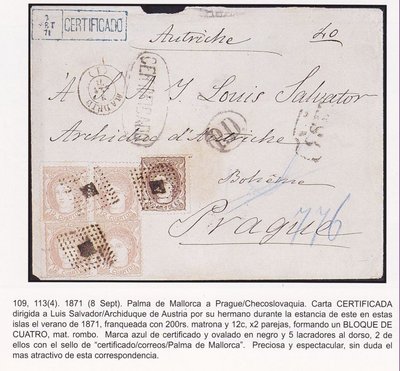 CERTIFICADO
Autriche
40
MADRID
CERTIFICADO
À S. A. I. Louis Salvator
Archiduc d'Autriche
P.D.
Bohême
Prague
776
109, 113(4). 1871 (8 Sept). Palma de Mallorca a Prague/Checoslovaquia. Carta CERTIFICADA
dirigida a Luis Salvador/Archiduque de Austria por su hermano durante la estancia de este en estas
islas el verano de 1871, franqueada con 200rs. matrona y 12c, x2 parejas, formando un BLOQUE DE
CUATRO, mat. rombo. Marca azul de certificado y ovalado en negro y 5 lacradores al dorso, 2 de
ellos con el sello de "certificado/correos/Palma de Mallorca". Preciosa y espectacular, sin duda el
mas atractivo de esta correspondencia.